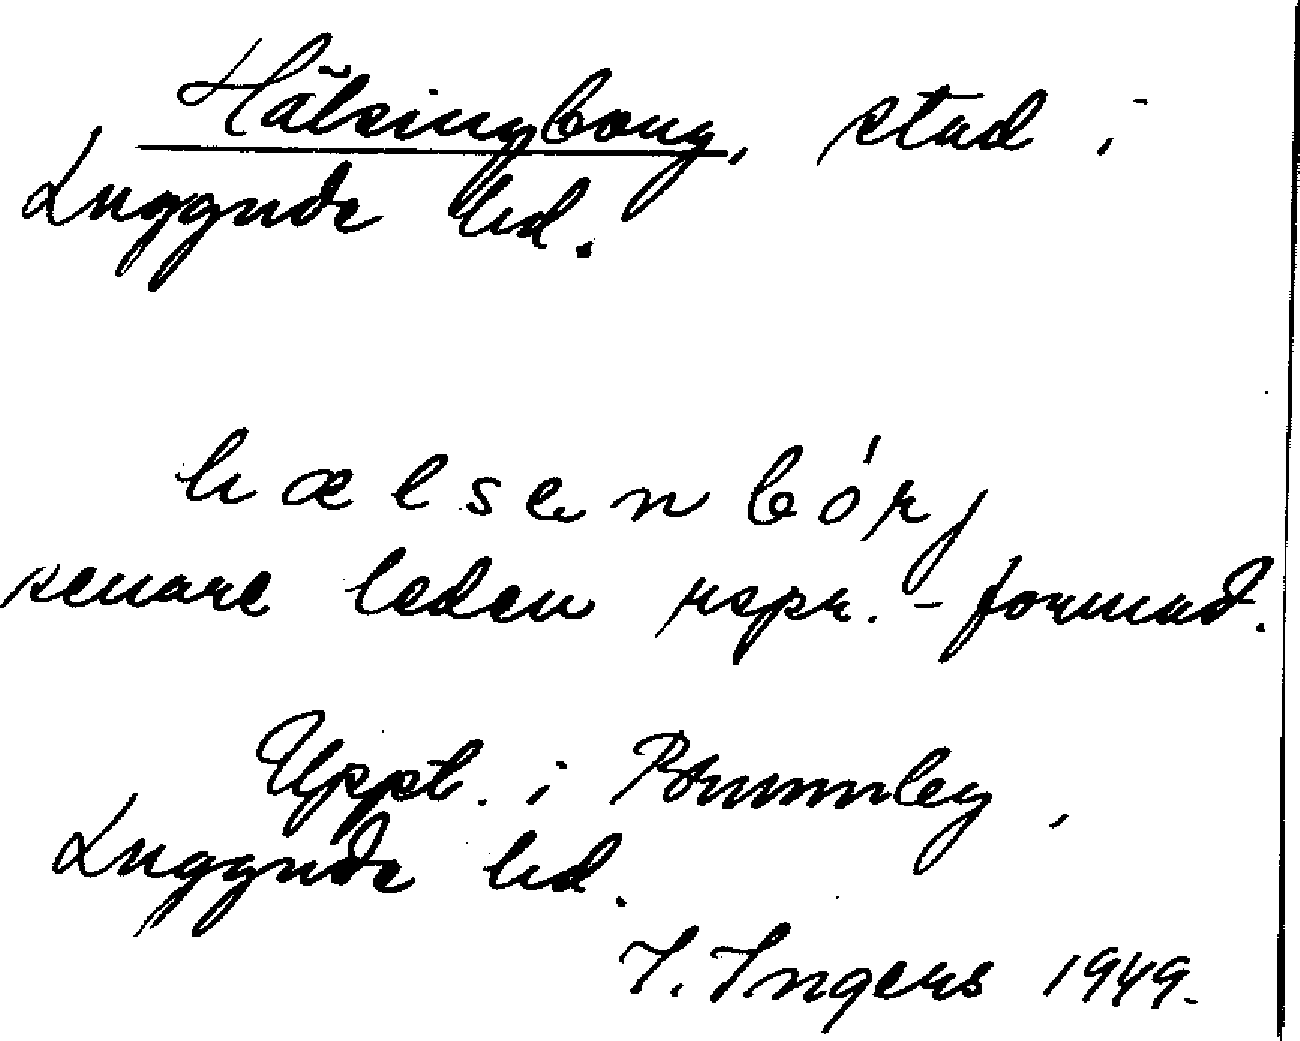 Hälsingborg, stad i
Luggude hd.
hælsenbórj
senare leden rspr.-formad.
Uppt. i Brunnby,
Luggude hd.
I. Ingers 1949.